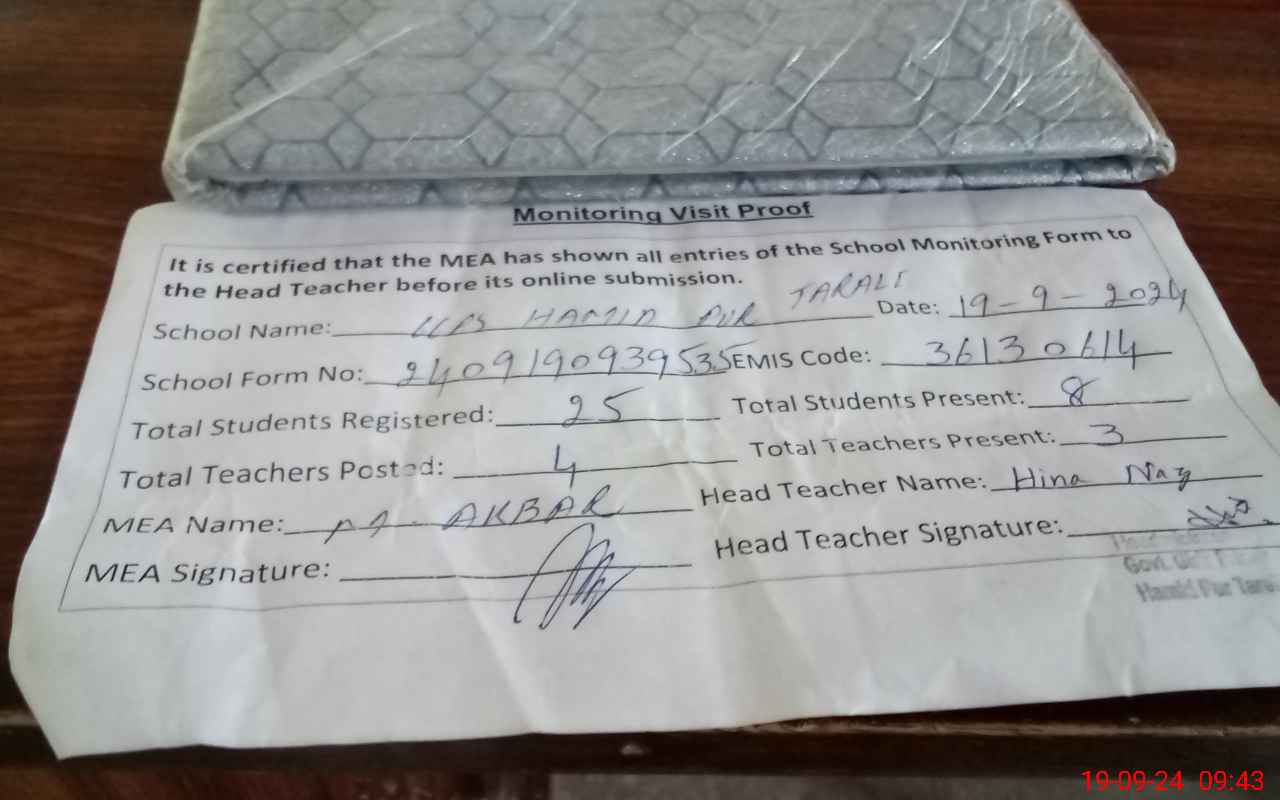 Monitoring Visit Proof
It is certified that the MEA has shown all entries of the School Monitoring Form to
the Head Teacher before its online submission.
School Name: HAMID PUR TARALI Date: 19-9-2024
School Form No: 2409190939535 EMIS Code: 36130614
Total Students Registered: 25 Total Students Present: 8
Total Teachers Posted: 4 Total Teachers Present: 3
MEA Name: AKBAR Head Teacher Name: Hina Naz
MEA Signature: Head Teacher Signature:
Govt.
Hamid Pur Tara
19-09-24 09:43